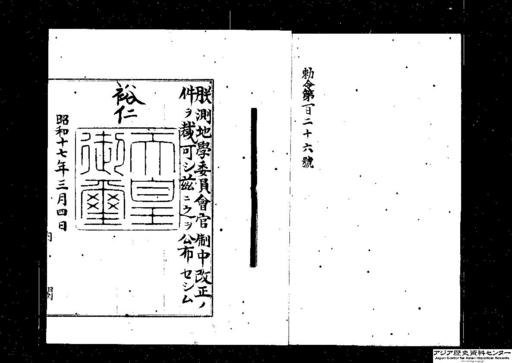 勅令第百二十六號
朕測地學委員會官制中改正ノ
件ヲ裁可シ茲ニ之ヲ公布セシム
裕仁
天皇
御璽
昭和十七年三月四日
内閣
アジア歴史資料センター
Japan Center for Asian Historical Records